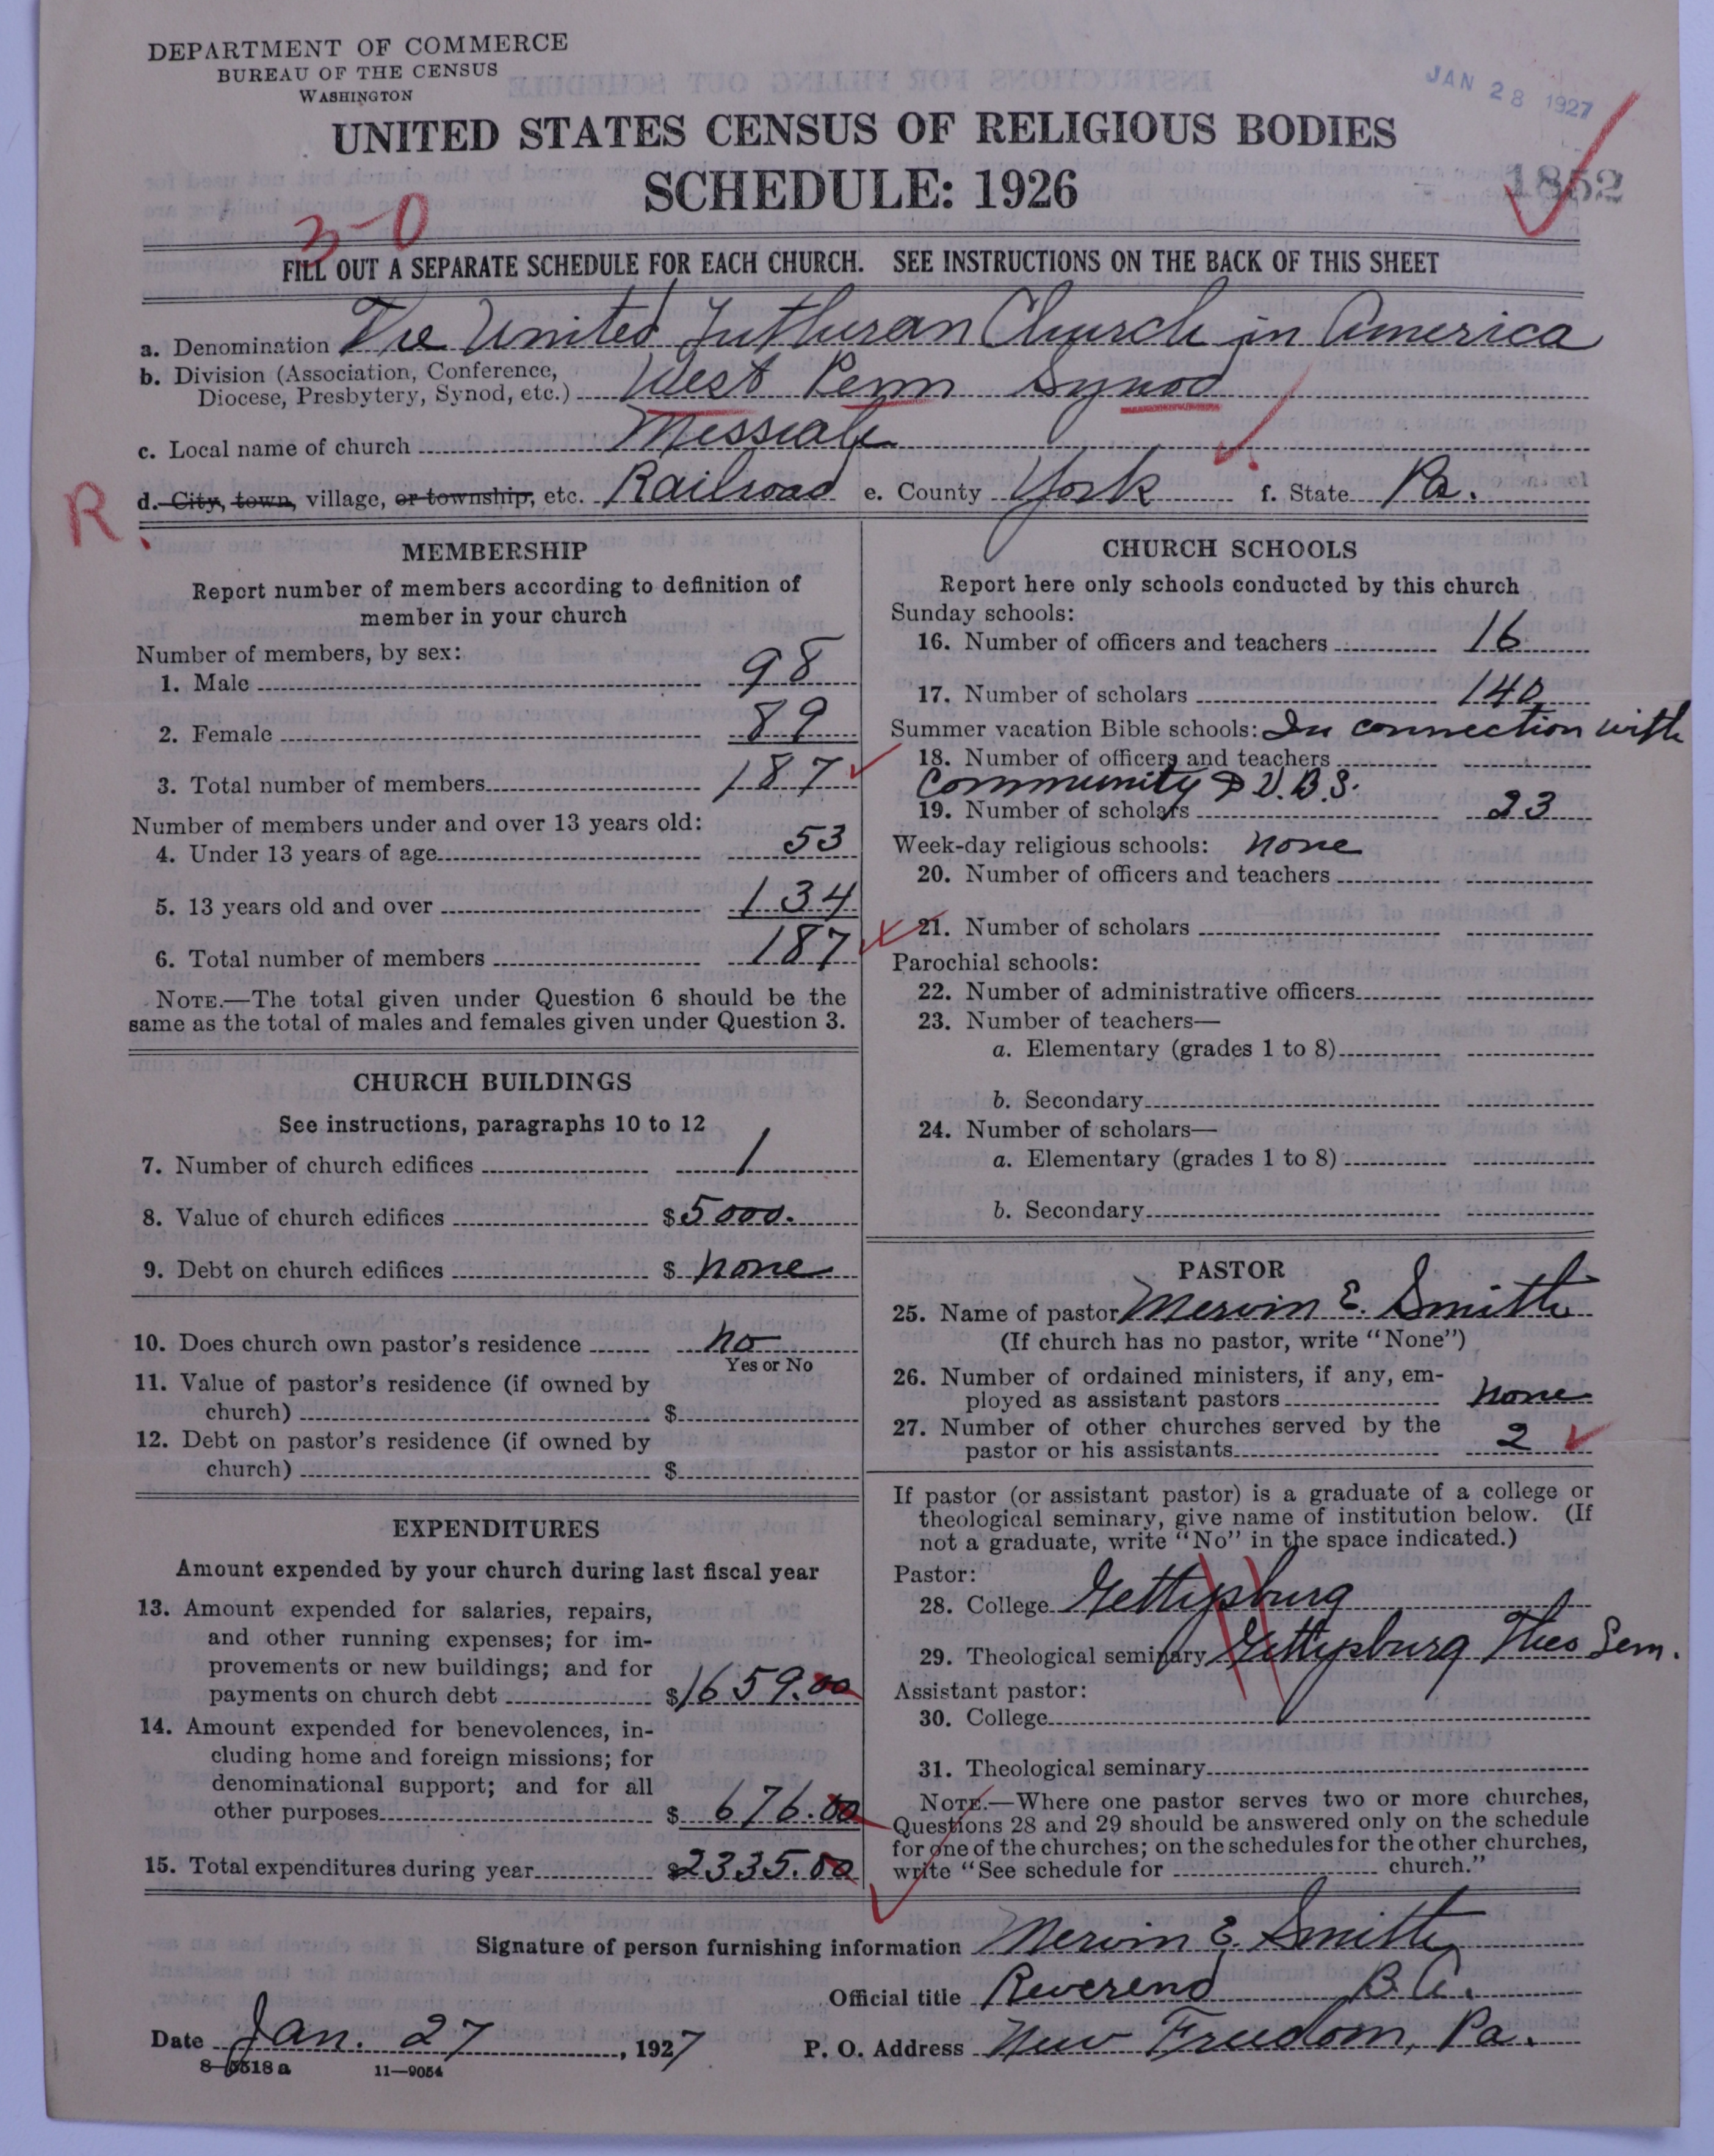 DEPARTMENT OF COMMERCE
BUREAU OF THE CENSUS
WASHINGTON
JAN 28 1927
UNITED STATES CENSUS OF RELIGIOUS BODIES
SCHEDULE: 1926
1852
3-0
FILL OUT A SEPARATE SCHEDULE FOR EACH CHURCH. SEE INSTRUCTIONS ON THE BACK OF THIS SHEET
a. Denomination The United Lutheran Church in America
b. Division (Association, Conference,
Diocese, Presbytery, Synod, etc.) West Penn Synod
c. Local name of church Messiah
R. d. City, town, village, or township, etc. Railroad e. County York f. State Pa.
MEMBERSHIP
Report number of members according to definition of
member in your church
Number of members, by sex:
1. Male 98
2. Female 89
3. Total number of members 187
Number of members under and over 13 years old:
4. Under 13 years of age 53
5. 13 years old and over 134
6. Total number of members 187
NOTE.—The total given under Question 6 should be the
same as the total of males and females given under Question 3.
CHURCH BUILDINGS
See instructions, paragraphs 10 to 12
7. Number of church edifices 1
8. Value of church edifices $5000.
9. Debt on church edifices $ none
10. Does church own pastor's residence no
Yes or No
11. Value of pastor's residence (if owned by
church) $
12. Debt on pastor's residence (if owned by
church) $
EXPENDITURES
Amount expended by your church during last fiscal year
13. Amount expended for salaries, repairs,
and other running expenses; for im-
provements or new buildings; and for
payments on church debt $1659.00
14. Amount expended for benevolences, in-
cluding home and foreign missions; for
denominational support; and for all
other purposes $ 676.00
15. Total expenditures during year $2335.00
CHURCH SCHOOLS
Report here only schools conducted by this church
Sunday schools:
16. Number of officers and teachers 16
17. Number of scholars 140
Summer vacation Bible schools: In connection with
18. Number of officers and teachers
Community D.V.B.S.
19. Number of scholars 23
Week-day religious schools: none
20. Number of officers and teachers
21. Number of scholars
Parochial schools:
22. Number of administrative officers
23. Number of teachers—
a. Elementary (grades 1 to 8)
b. Secondary
24. Number of scholars—
a. Elementary (grades 1 to 8)
b. Secondary
PASTOR
25. Name of pastor Mervin E. Smith
(If church has no pastor, write "None")
26. Number of ordained ministers, if any, em-
ployed as assistant pastors none
27. Number of other churches served by the
pastor or his assistants 2
If pastor (or assistant pastor) is a graduate of a college or
theological seminary, give name of institution below. (If
not a graduate, write "No" in the space indicated.)
Pastor:
28. College Gettysburg
29. Theological seminary Gettysburg Theo Sem.
Assistant pastor:
30. College
31. Theological seminary
NOTE.—Where one pastor serves two or more churches,
Questions 28 and 29 should be answered only on the schedule
for one of the churches; on the schedules for the other churches,
write "See schedule for church."
Signature of person furnishing information Mervin E. Smith
Official title Reverend B.A.
Date Jan. 27, 1927 P. O. Address New Freedom, Pa.
8-5518a 11-9054